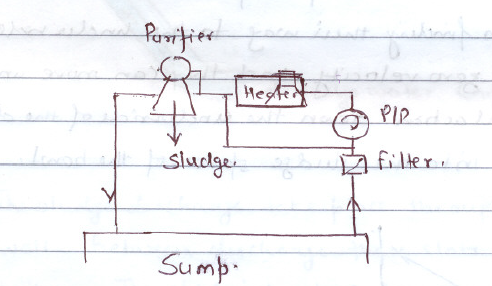 Purifier
Heater
P/P
Sludge.
Filter.
Sump.